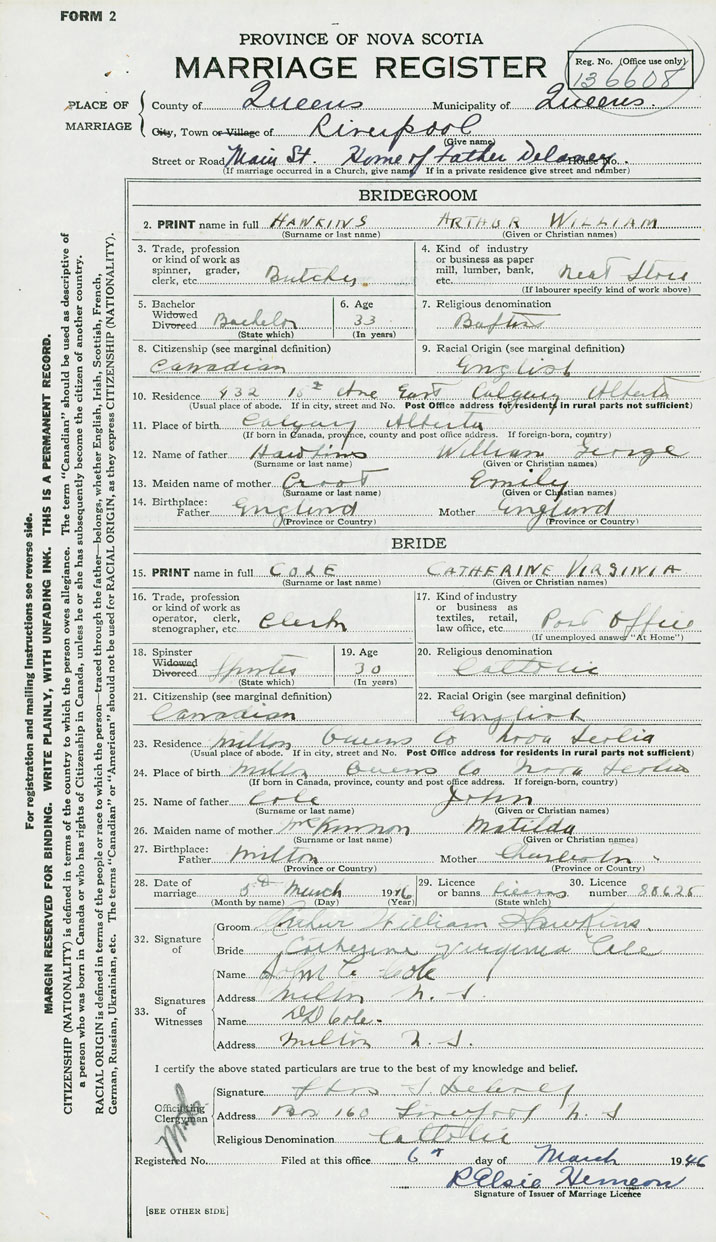 FORM 2
PROVINCE OF NOVA SCOTIA
MARRIAGE REGISTER
Reg. No. (Office use only)
136608
PLACE OF MARRIAGE
County of Queens Municipality of Queens.
City, Town or Village of Liverpool
(Give name)
Street or Road Main St. Home of Father Delaney
(If marriage occurred in a Church, give name) If in a private residence give street and number)
BRIDEGROOM
2. PRINT name in full HAWKINS ARTHUR WILLIAM
(Surname or last name) (Given or Christian names)
3. Trade, profession or kind of work as spinner, grader, clerk, etc. Butcher.
4. Kind of industry or business as paper mill, lumber, bank, etc. Meat Store
(If labourer specify kind of work above)
5. Bachelor Widowed Divorced Bachelor
(State which)
6. Age 33
(In years)
7. Religious denomination Baptist
8. Citizenship (see marginal definition) Canadian
9. Racial Origin (see marginal definition) English
10. Residence 432 18th Ave East Calgary Alberta
(Usual place of abode. If in city, street and No. Post Office address for residents in rural parts not sufficient)
11. Place of birth Calgary Alberta
(If born in Canada, province, county and post office address. If foreign-born, country)
12. Name of father Hawkins William George
(Surname or last name) (Given or Christian names)
13. Maiden name of mother Croot Emily
(Surname or last name) (Given or Christian names)
14. Birthplace: Father England Mother England
(Province or Country) (Province or Country)
BRIDE
15. PRINT name in full COLE CATHERINE VIRGINIA
(Surname or last name) (Given or Christian names)
16. Trade, profession or kind of work as operator, clerk, stenographer, etc. Clerk
17. Kind of industry or business as textiles, retail, law office, etc. Post Office
(If unemployed answer "At Home")
18. Spinster Widowed Divorced Spinster
(State which)
19. Age 30
(In years)
20. Religious denomination Catholic
21. Citizenship (see marginal definition) Canadian
22. Racial Origin (see marginal definition) English
23. Residence Milton Queens Co Nova Scotia
(Usual place of abode. If in city, street and No. Post Office address for residents in rural parts not sufficient)
24. Place of birth Milton Queens Co Nova Scotia
(If born in Canada, province, county and post office address. If foreign-born, country)
25. Name of father Cole John
(Surname or last name) (Given or Christian names)
26. Maiden name of mother McKinnon Matilda
(Surname or last name) (Given or Christian names)
27. Birthplace: Father Milton Mother
(Province or Country) (Province or Country)
28. Date of marriage 5th March 1946
(Month by name) (Day) (Year)
29. Licence or banns
(State which)
30. Licence number 88625
32. Signature of
Groom Arthur William Hawkins.
Bride Catherine Virginia Cole
33. Signatures of Witnesses
Name John C. Cole
Address Milton N. S.
Name DD Cole
Address Milton N. S.
I certify the above stated particulars are true to the best of my knowledge and belief.
Officiating Clergyman
Signature
Address Box 160 Liverpool N S
Religious Denomination Catholic
Registered No. Filed at this office 6th day of March 1946
R Elsie Hemeon
Signature of Issuer of Marriage Licence
[SEE OTHER SIDE]
For registration and mailing instructions see reverse side.
MARGIN RESERVED FOR BINDING. WRITE PLAINLY, WITH UNFADING INK. THIS IS A PERMANENT RECORD.
CITIZENSHIP (NATIONALITY) is defined in terms of the country to which the person owes allegiance. The term "Canadian" should be used as descriptive of
a person who was born in Canada or who has rights of Citizenship in Canada, unless he or she has subsequently become the citizen of another country.
RACIAL ORIGIN is defined in terms of the people or race to which the person—traced through the father—belongs, whether English, Irish, Scottish, French,
German, Russian, Ukrainian, etc. The terms "Canadian" or "American" should not be used for RACIAL ORIGIN, as they express CITIZENSHIP (NATIONALITY).